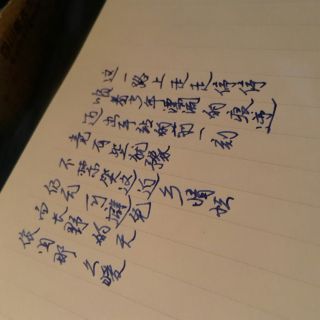 这一路上走走停停
顺着少年漂流的痕迹
迈出车站的前一刻
竟有些犹豫
不禁笑这近乡情怯
仍无可避免
而长野的天
依旧那么暖